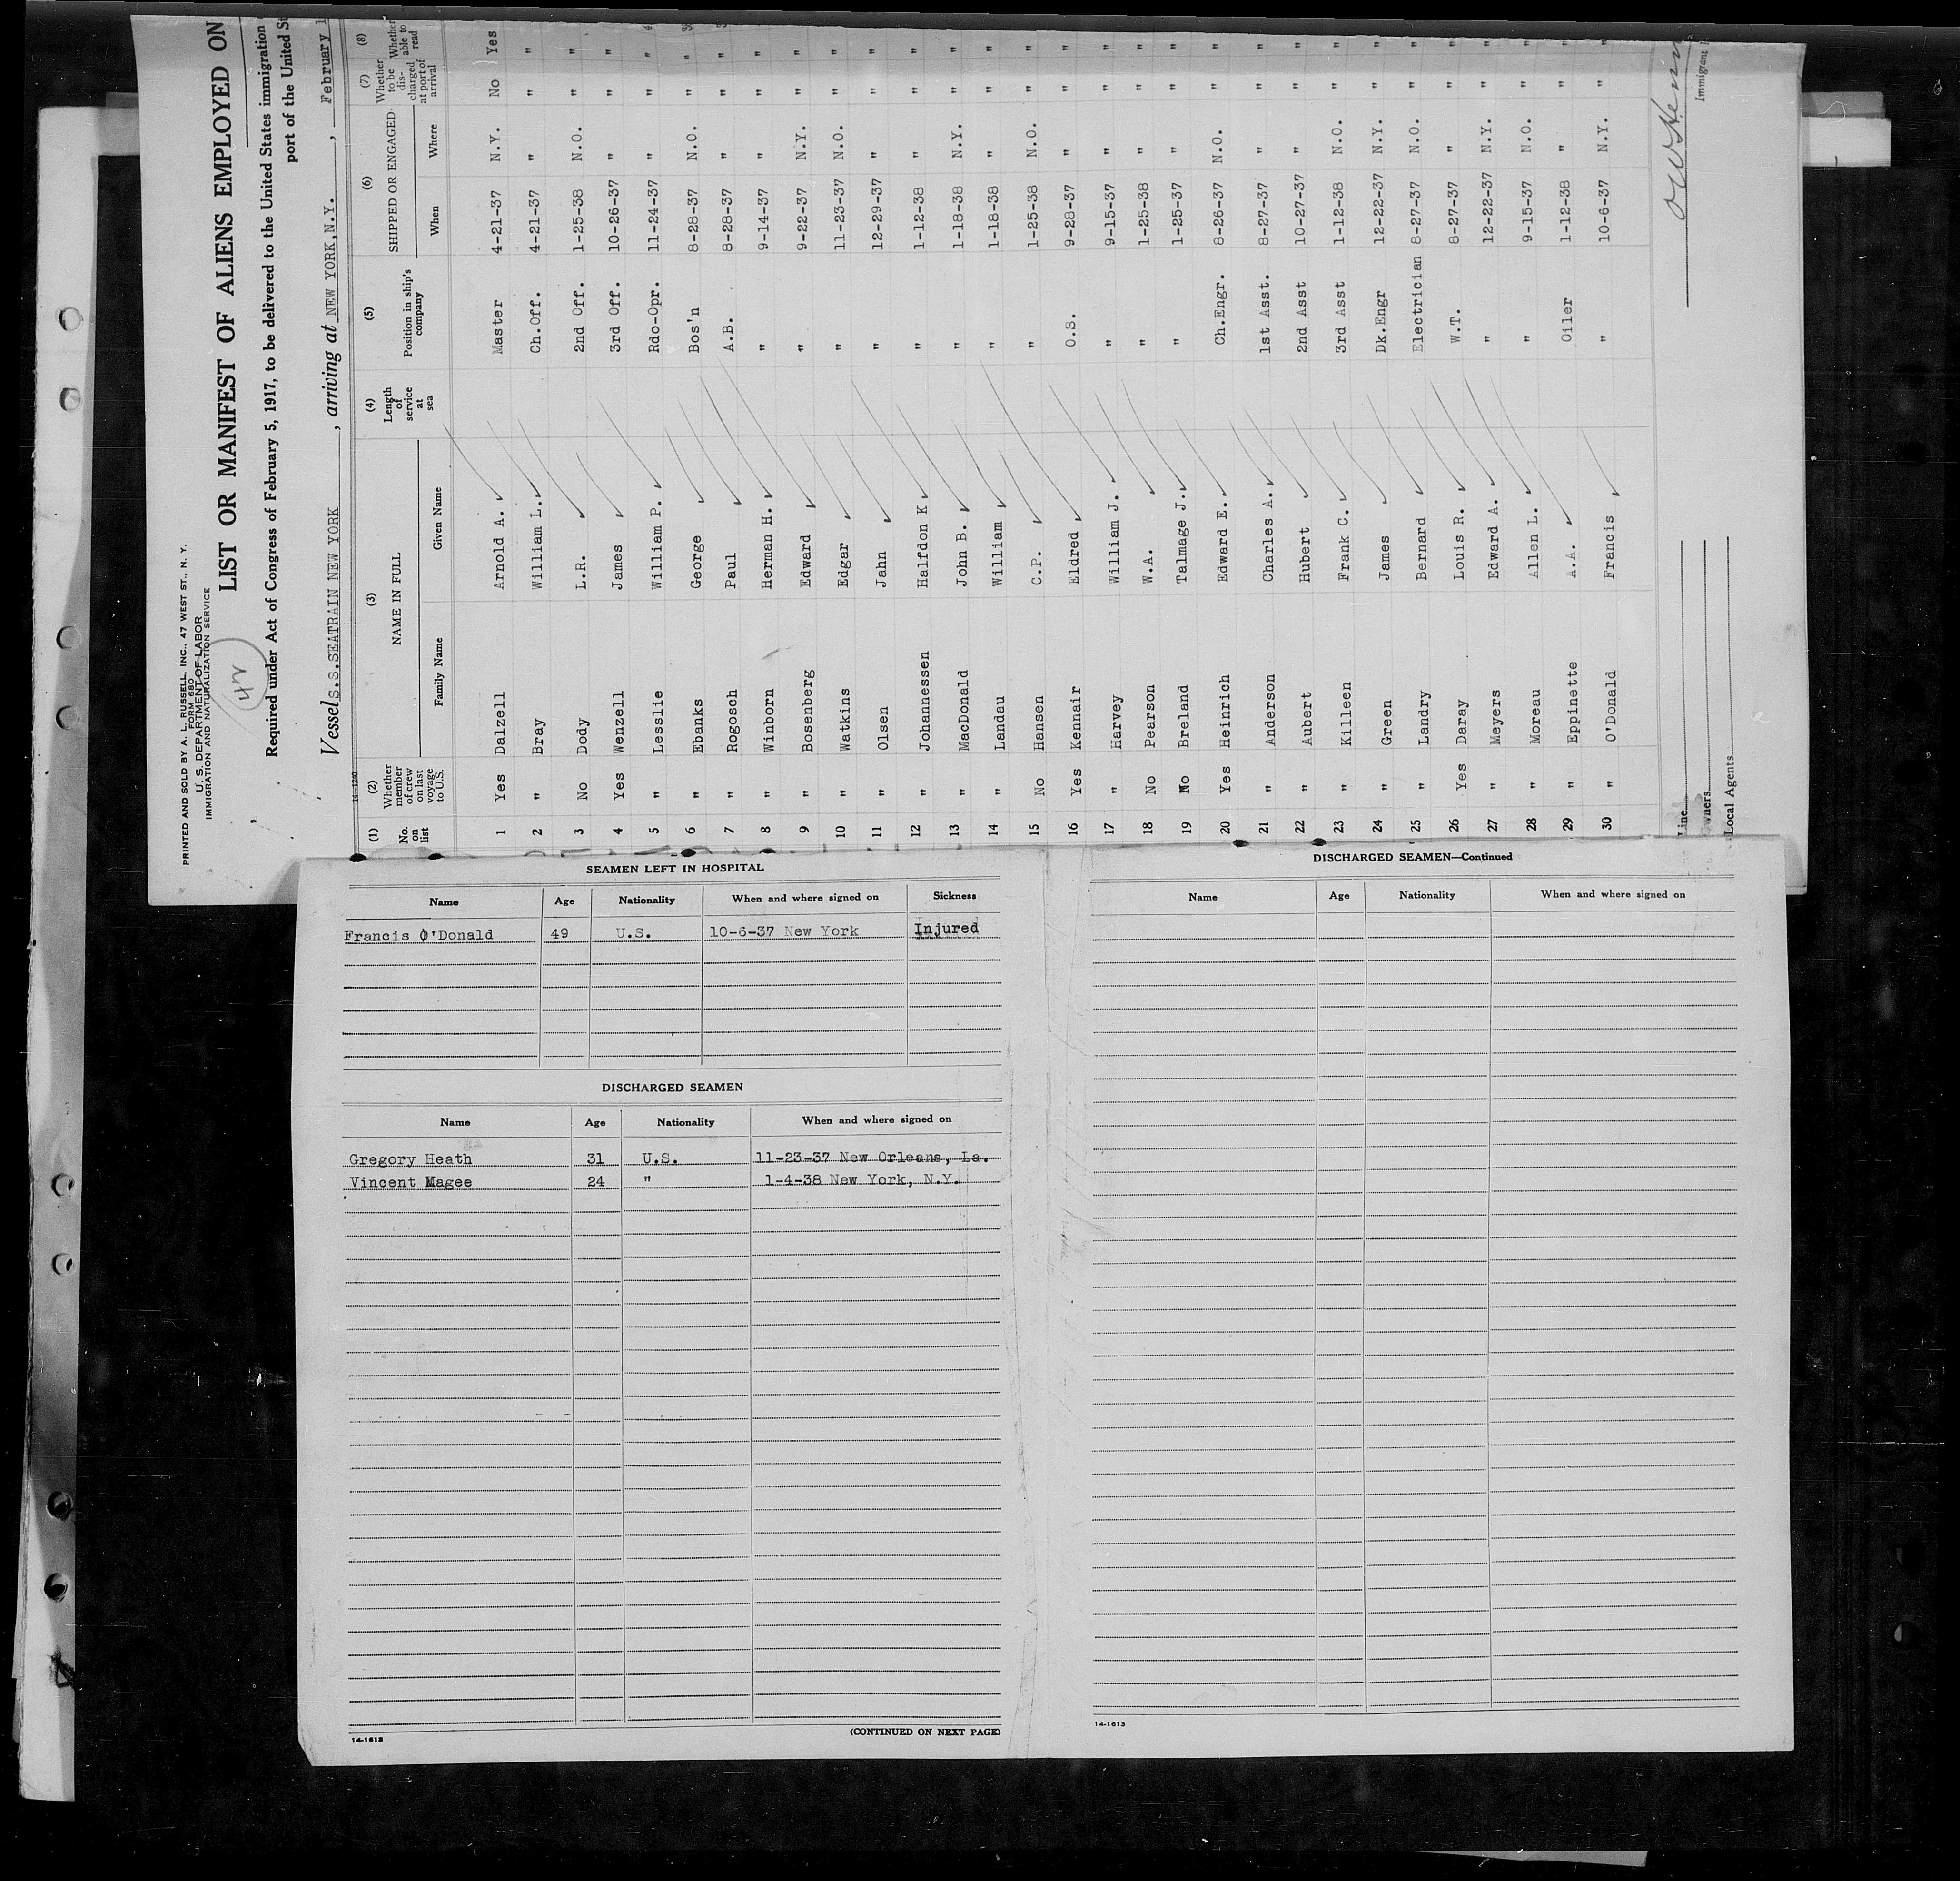 PRINTED AND SOLD BY A. L. RUSSELL, INC., 47 WEST ST., N. Y.
FORM 680
U. S. DEPARTMENT OF LABOR
IMMIGRATION AND NATURALIZATION SERVICE
42
LIST OR MANIFEST OF ALIENS EMPLOYED ON
Required under Act of Congress of February 5, 1917, to be delivered to the United States immigration
port of the United St
Vessel s.s.SEATRAIN NEW YORK, arriving at NEW YORK N.Y., February 1
(1) No. on list (2) Whether member of crew on last voyage to U.S. (3) NAME IN FULL Family Name Given Name (4) Length of service at sea (5) Position in ship's company (6) SHIPPED OR ENGAGED When Where (7) Whether to be discharged at port of arrival (8) Whether able to read
1 Yes Dalzell Arnold A. Master 4-21-37 N.Y. No Yes
2 " Bray William L. Ch.Off. 4-21-37 " " "
3 No Dody L.R. 2nd Off. 1-25-38 N.O. " "
4 Yes Wenzell James 3rd Off. 10-26-37 " " "
5 " Lesslie William P. Rdo-Opr. 11-24-37 " " " 4
6 " Ebanks George Bos'n 8-28-37 N.O. " " 3
7 " Rogosch Paul A.B. 8-28-37 " " "
8 " Winborn Herman H. " 9-14-37 " " "
9 " Bosenberg Edward " 9-22-37 N.Y. " "
10 " Watkins Edgar " 11-23-37 N.O. " "
11 " Olsen Jahn " 12-29-37 " " "
12 " Johannessen Halfdon K " 1-12-38 " " "
13 " MacDonald John B. " 1-18-38 N.Y. " "
14 " Landau William " 1-18-38 " " "
15 No Hansen C.P. " 1-25-38 N.O. " "
16 Yes Kennair Eldred O.S. 9-28-37 " " "
17 " Harvey William J. " 9-15-37 " " "
18 No Pearson W.A. " 1-25-38 " " "
19 No Breland Talmage J. " 1-25-37 " " "
20 Yes Heinrich Edward E. Ch.Engr. 8-26-37 N.O. " "
21 " Anderson Charles A. 1st Asst. 8-27-37 " " "
22 " Aubert Hubert 2nd Asst 10-27-37 " " "
23 " Killeen Frank C. 3rd Asst 1-12-38 N.O. " "
24 " Green James Dk.Engr 12-22-37 N.Y. " "
25 " Landry Bernard Electrician 8-27-37 N.O. " "
26 Yes Daray Louis R. W.T. 8-27-37 " " "
27 " Meyers Edward A. " 12-22-37 N.Y. " "
28 " Moreau Allen L. " 9-15-37 N.O. " "
29 " Eppinette A.A. Oiler 1-12-38 " " "
30 " O'Donald Francis " 10-6-37 N.Y. " "
Line
Owners
Local Agents
Immigrant
SEAMEN LEFT IN HOSPITAL
Name Age Nationality When and where signed on Sickness
Francis O'Donald 49 U.S. 10-6-37 New York Injured
DISCHARGED SEAMEN
Name Age Nationality When and where signed on
Gregory Heath 31 U.S. 11-23-37 New Orleans, La.
Vincent Magee 24 " 1-4-38 New York, N.Y.
(CONTINUED ON NEXT PAGE)
14-1613
DISCHARGED SEAMEN—Continued
Name Age Nationality When and where signed on
14-1613